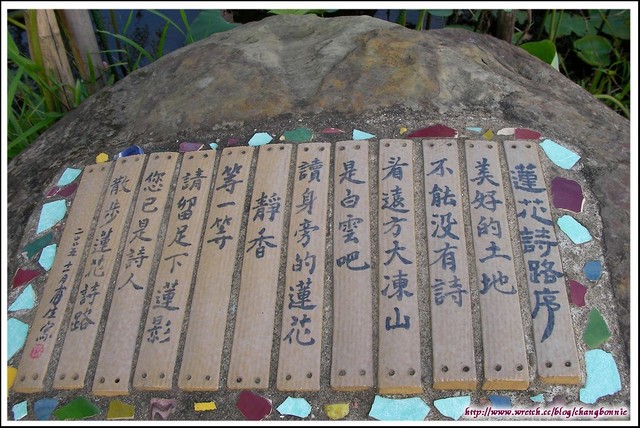 蓮花詩路序
美好的土地
不能没有詩
看遠方大凍山
是白雲吧
讀身旁的蓮花
靜香
等一等
請留足下蓮影
您已是詩人
散步蓮花詩路
二〇〇五
http://www.wretch.cc/blog/changbonnie